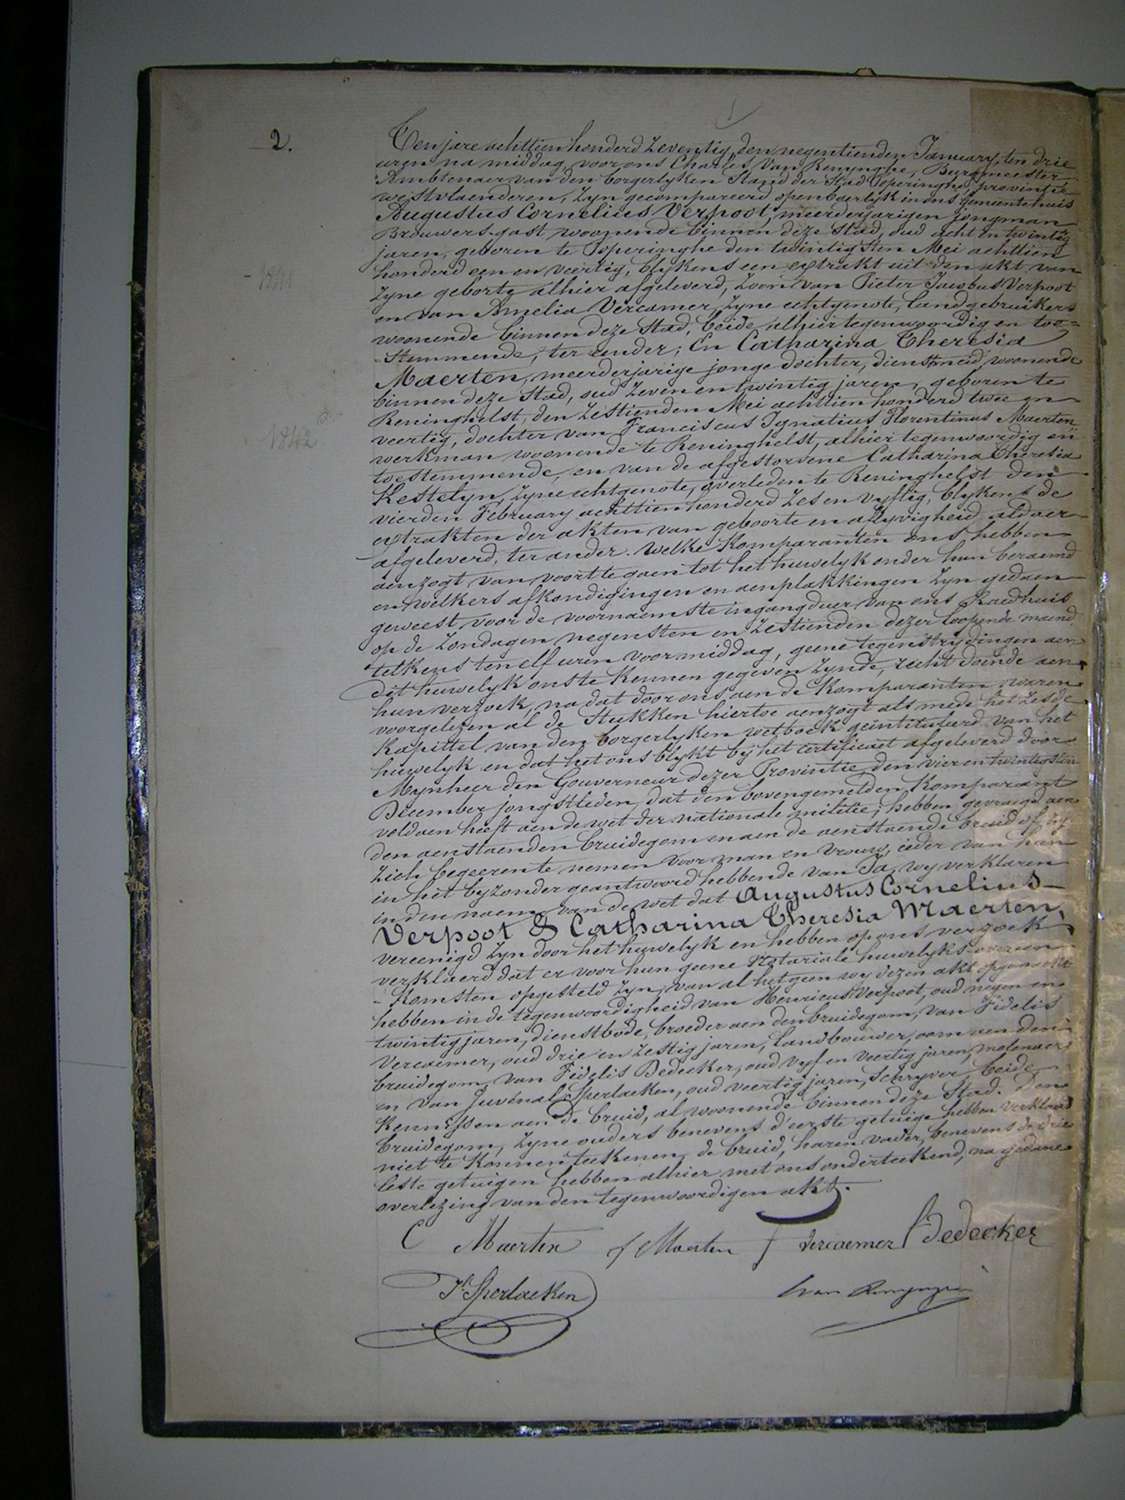 2.
Ten jare achttien honderd zeventig, den negentienden January, ten drie
uren na middag, voor ons Charles Van Renynghe, Burgmeester
Ambtenaer van den borgerlyken Stand der Stad Poperinghe provintie
westvlaenderen, zyn gecompareerd openbaerlyk in ons gemeentehuis
Augustus Cornelius Verpoot, meerderjarigen jongman
Brouwersgast woonende binnen deze Stad, oud acht en twintig
jaren, geboren te Poperinghe den twintigsten Mei achttien
honderd een en veertig, blykens een extrakt uit den akt van
zyne geborte alhier afgeleverd, zoon van Pieter Jacobus Verpoot
en van Amelia Vercamer, zyne echtgenote, landgebruikers
woonende binnen deze Stad, beide alhier tegenwoordig en toe=
-stemmende, ter eender; En Catharina Theresia
Maerten, meerderjarige jonge dochter, dienstmeid, woonende
binnen deze Stad, oud zeven en twintig jaren, geboren te
Reninghelst, den zestienden Mei achttien honderd twee en
veertig, dochter van Franciscus Ignatius Florentinus Maerten
werkman woonende te Reninghelst, alhier tegenwoordig en
toestemmende, en van de afgestorvene Catharina Theresia
Kestelyn, zyne echtgenote, overleden te Reninghelst den
vierden February achttien honderd zes en vyftig, blykens de
extrakten der akten van geboorte en aflyvigheid aldaer
afgeleverd, ter ander. Welke Komparanten ons hebben
aenzogt van voort te gaen tot het huwelyk onder hun beraemd
en welkers afkondigingen en aenplakkingen zyn gedaen
geweest voor de voornaemste ingangduer van ons Raedhuis
op de zondagen negensten en zestienden dezer loopende maend
telkens ten elf uren voormiddag, geene tegenstrydingen aen
dit huwelyk ons te kennen gegeven zynde, recht doende aen
hun verzoek, na dat door ons aen de Komparanten waren
voorgelezen al de Stukken hiertoe aenzogt als mede het zesde
Kapittel van den borgerlyken wetboek geintituleerd van het
huwelyk en dat het ons blykt bij het certificaet afgeleverd door
Mynheer den Gouverneur dezer Provintie, den vier en twintigsten
December jongstleden, dat den bovengemelden Komparant
voldaen heeft aen de wet der nationale militie; hebben gevraegd aen
den aenstaenden bruidegom en aen de aenstaende bruid of zy
zich begeerente nemen voor man en vrouw, ieder van hun
in het byzonder geantwoord hebbende van Ja, wy verklaren
in den naem van de wet dat Augustus Cornelius
Verpoot & Catharina Theresia Maerten,
vereenigd zyn door het huwelyk en hebben op ons verzoek
verklaerd dat er voor hun geene Notariale huwelyks overeen
-komsten opgesteld zyn, van al het gene wy dezen akt opgemaekt
hebben in de tegenwoordigheid van Henricus Verpoot, oud negen en
twintig jaren, dienstbode, broeder aen den bruidegom, van Fidelis
Vercaemer, oud drie en zestig jaren, landbouwer, oom aen den
bruidegom, van Fidelis Dedecker, oud vyf en veertig jaren, molenaer
en van Juvenal Sperlaeken, oud veertig jaren, schryver, beide
Kennissen aen de bruid, al woonende binnen deze Stad. Den
bruidegom, zyne ouders benevens d'eerste getuige hebben verklaerd
niet te konnen teekenen, de bruid, haren vader, benevens de drie
leste getuigen hebben alhier met ons onderteekend, na gedane
overlezing van den tegenwoordigen akt.
C Maerten f Maerten f vercaemer f Dedecker
Jl Sperlaeken C van Renynghe
1841
1842